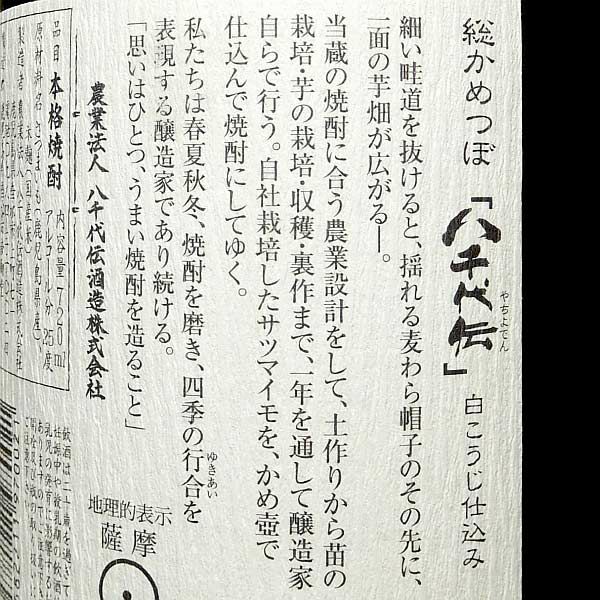 総かめつぼ「八千代伝」白こうじ仕込み
やちよでん
細い畦道を抜けると、揺れる麦わら帽子のその先に、
一面の芋畑が広がる―。
当蔵の焼酎に合う農業設計をして、土作りから苗の
栽培・芋の栽培・収穫・裏作まで、一年を通して醸造家
自らで行う。自社栽培したサツマイモを、かめ壺で
仕込んで焼酎にしてゆく。
私たちは春夏秋冬、焼酎を磨き、四季の行合を
ゆきあい
表現する醸造家であり続ける。
「思いはひとつ、うまい焼酎を造ること」
農業法人 八千代伝酒造株式会社
地理的表示
薩摩
品目 本格焼酎 内容量720ml
原材料名 さつまいも(鹿児島県産)、アルコール分25度
米麹(国産米)
製造者 農業法人八千代伝酒造株式会社
飲酒は二十歳を過ぎて
妊娠中や授乳期の飲酒
乳児の発育に影響する